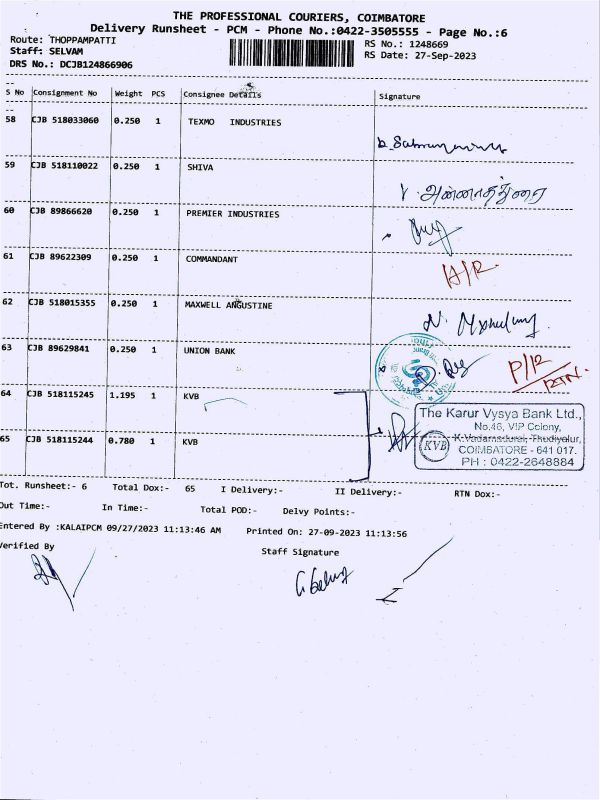 THE PROFESSIONAL COURIERS, COIMBATORE
Delivery Runsheet - PCM - Phone No.:0422-3505555 - Page No.:6
Route: THOPPAMPATTI RS No.: 1248669
Staff: SELVAM RS Date: 27-Sep-2023
DRS No.: DCJB124866906
S No Consignment No Weight PCS Consignee Details Signature
58 CJB 518033060 0.250 1 TEXMO INDUSTRIES
59 CJB 518110022 0.250 1 SHIVA
அண்ணாதுரை
60 CJB 89866620 0.250 1 PREMIER INDUSTRIES
61 CJB 89622309 0.250 1 COMMANDANT
62 CJB 518015355 0.250 1 MAXWELL ANGUSTINE
63 CJB 89629841 0.250 1 UNION BANK P/R
RTN.
64 CJB 518115245 1.195 1 KVB
65 CJB 518115244 0.780 1 KVB
The Karur Vysya Bank Ltd.,
No.46, VIP Colony,
K.Vadamadurai, Thudiyalur,
KVB COIMBATORE - 641 017.
PH : 0422-2648884
Tot. Runsheet:- 6 Total Dox:- 65 I Delivery:- II Delivery:- RTN Dox:-
Out Time:- In Time:- Total POD:- Delvy Points:-
Entered By :KALAIPCM 09/27/2023 11:13:46 AM Printed On: 27-09-2023 11:13:56
Verified By Staff Signature